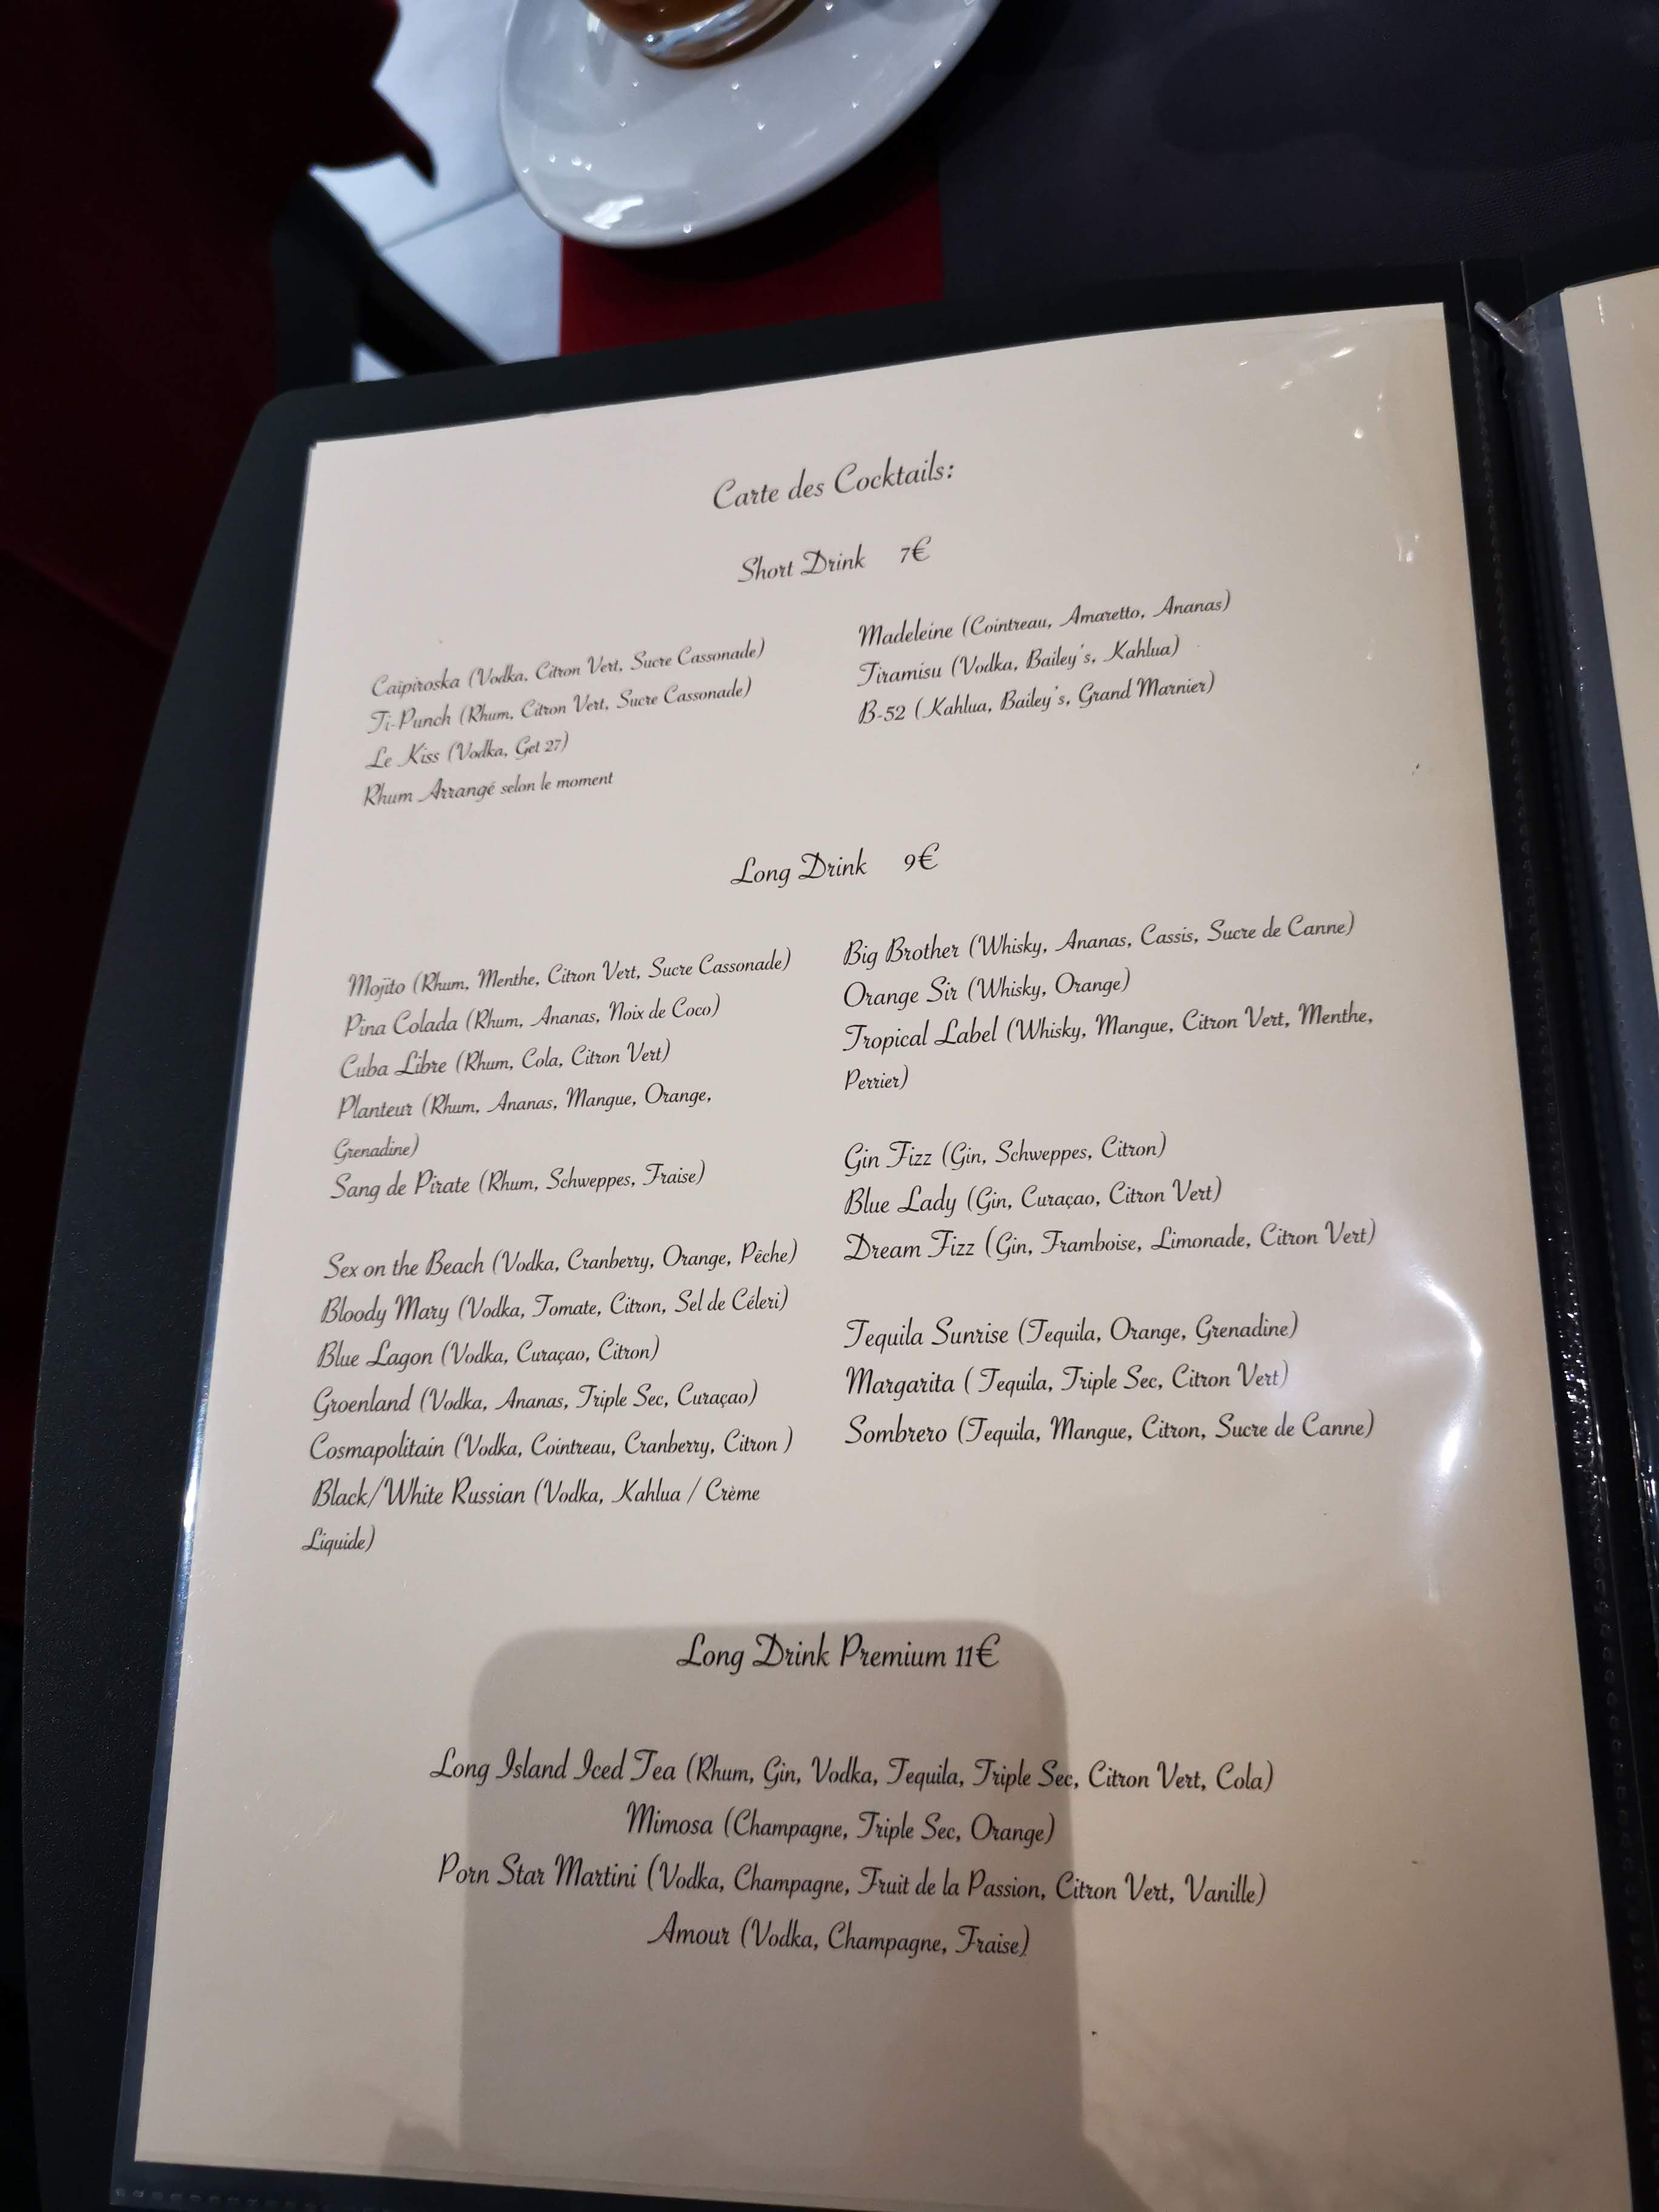 Carte des Cocktails:
Short Drink 7€
Caïpiroska (Vodka, Citron Vert, Sucre Cassonade)
Ti-Punch (Rhum, Citron Vert, Sucre Cassonade)
Le Kiss (Vodka, Get 27)
Rhum Arrangé selon le moment
Madeleine (Cointreau, Amaretto, Ananas)
Tiramisu (Vodka, Bailey's, Kahlua)
B-52 (Kahlua, Bailey's, Grand Marnier)
Long Drink 9€
Mojito (Rhum, Menthe, Citron Vert, Sucre Cassonade)
Pina Colada (Rhum, Ananas, Noix de Coco)
Cuba Libre (Rhum, Cola, Citron Vert)
Planteur (Rhum, Ananas, Mangue, Orange,
Grenadine)
Sang de Pirate (Rhum, Schweppes, Fraise)
Sex on the Beach (Vodka, Cranberry, Orange, Pêche)
Bloody Mary (Vodka, Tomate, Citron, Sel de Céleri)
Blue Lagon (Vodka, Curaçao, Citron)
Groenland (Vodka, Ananas, Triple Sec, Curaçao)
Cosmapolitain (Vodka, Cointreau, Cranberry, Citron )
Black/White Russian (Vodka, Kahlua / Crème
Liquide)
Big Brother (Whisky, Ananas, Cassis, Sucre de Canne)
Orange Sir (Whisky, Orange)
Tropical Label (Whisky, Mangue, Citron Vert, Menthe,
Perrier)
Gin Fizz (Gin, Schweppes, Citron)
Blue Lady (Gin, Curaçao, Citron Vert)
Dream Fizz (Gin, Framboise, Limonade, Citron Vert)
Tequila Sunrise (Tequila, Orange, Grenadine)
Margarita ( Tequila, Triple Sec, Citron Vert)
Sombrero (Tequila, Mangue, Citron, Sucre de Canne)
Long Drink Premium 11€
Long Island Iced Tea (Rhum, Gin, Vodka, Tequila, Triple Sec, Citron Vert, Cola)
Mimosa (Champagne, Triple Sec, Orange)
Porn Star Martini (Vodka, Champagne, Fruit de la Passion, Citron Vert, Vanille)
Amour (Vodka, Champagne, Fraise)